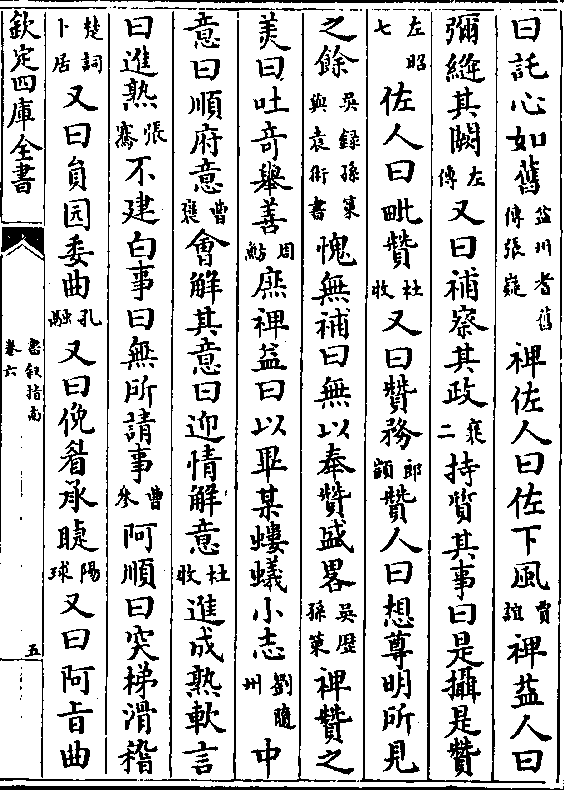 曰託心如舊益州耆舊傳張嶷裨佐人曰佐下風賈誼裨益人曰
彌縫其闕左傳又曰補察其政襄二持質其事曰是攝是贊
左昭七佐人曰毗贊杜牧又曰贊務郎顗贊人曰想尊明所見
之餘吳録孫策與袁術書愧無補曰無以奉贊盛畧吳歴孫策裨贊之
美曰吐奇舉善周鲂庶裨益曰以畢某螻蟻小志劉隨州中
意曰順府意曹褒會解其意曰迎情解意杜牧進成熟軟言
曰進熟張騫不建白事曰無所請事曹參阿順曰突梯滑稽
楚詞卜居又曰員园委曲孔融又曰俛眉承睫陽球又曰阿㫖曲
欽定四庫全書
書叙指南
卷六
五